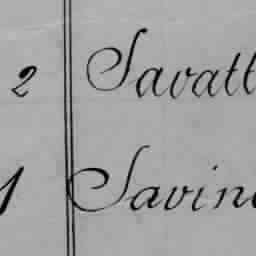 2 Savatt
1 Savin